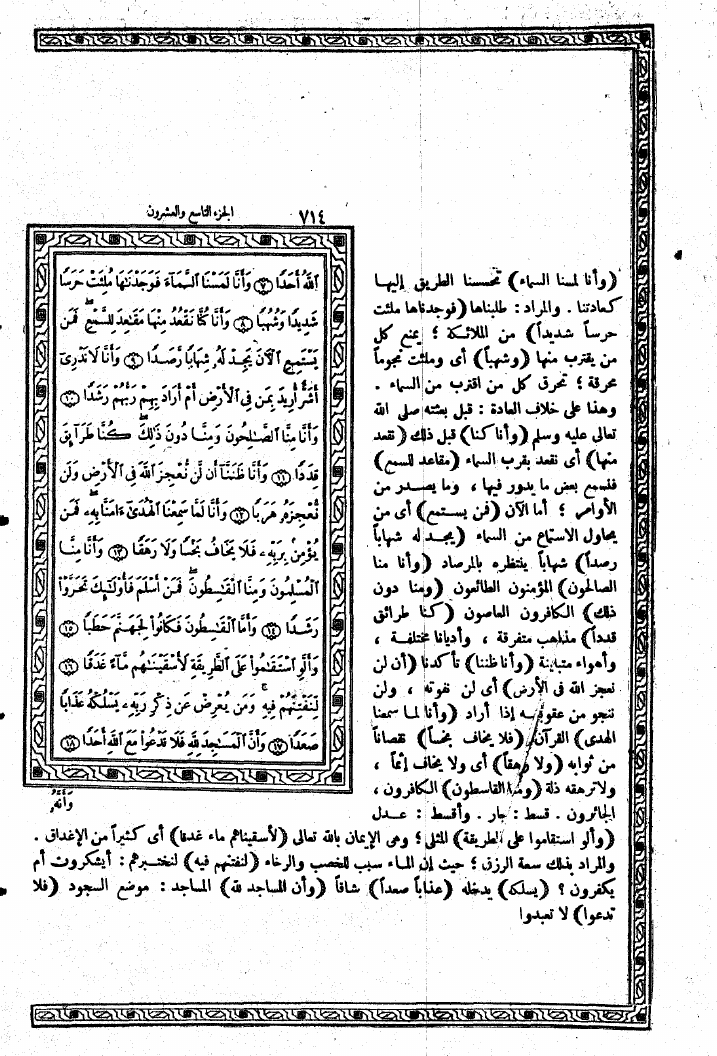 ٧١٤
الجزء التاسع والعشرون
ٱللَّهُ أَحَدًا ٧ وَأَنَّا لَمَسْنَا ٱلسَّمَآءَ فَوَجَدْنَٰهَا مُلِئَتْ حَرَسًا
شَدِيدًا وَشُهُبًا ٨ وَأَنَّا كُنَّا نَقْعُدُ مِنْهَا مَقَٰعِدَ لِلسَّمْعِ فَمَن
يَسْتَمِعِ ٱلْآنَ يَجِدْ لَهُۥ شِهَابًا رَّصَدًا ٩ وَأَنَّا لَا نَدْرِىٓ
أَشَرٌّ أُرِيدَ بِمَن فِى ٱلْأَرْضِ أَمْ أَرَادَ بِهِمْ رَبُّهُمْ رَشَدًا ١٠
وَأَنَّا مِنَّا ٱلصَّٰلِحُونَ وَمِنَّا دُونَ ذَٰلِكَ كُنَّا طَرَآئِقَ
قِدَدًا ١١ وَأَنَّا ظَنَنَّآ أَن لَّن نُّعْجِزَ ٱللَّهَ فِى ٱلْأَرْضِ وَلَن
نُّعْجِزَهُۥ هَرَبًا ١٢ وَأَنَّا لَمَّا سَمِعْنَا ٱلْهُدَىٰٓ ءَامَنَّا بِهِۦ فَمَن
يُؤْمِنۢ بِرَبِّهِۦ فَلَا يَخَافُ بَخْسًا وَلَا رَهَقًا ١٣ وَأَنَّا مِنَّا
ٱلْمُسْلِمُونَ وَمِنَّا ٱلْقَٰسِطُونَ فَمَنْ أَسْلَمَ فَأُو۟لَٰٓئِكَ تَحَرَّوْا۟
رَشَدًا ١٤ وَأَمَّا ٱلْقَٰسِطُونَ فَكَانُوا۟ لِجَهَنَّمَ حَطَبًا ١٥
وَأَلَّوِ ٱسْتَقَٰمُوا۟ عَلَى ٱلطَّرِيقَةِ لَأَسْقَيْنَٰهُم مَّآءً غَدَقًا ١٦
لِّنَفْتِنَهُمْ فِيهِ وَمَن يُعْرِضْ عَن ذِكْرِ رَبِّهِۦ يَسْلُكْهُ عَذَابًا
صَعَدًا ١٧ وَأَنَّ ٱلْمَسَٰجِدَ لِلَّهِ فَلَا تَدْعُوا۟ مَعَ ٱللَّهِ أَحَدًا ١٨
وَأَنَّهُۥ
(وأنا لمسنا السماء) تحسسنا الطريق إليها
كعادتنا . والمراد : طلبناها (فوجدناها ملئت
حرساً شديداً) من الملائكة ؛ يمنع كل
من يقترب منها (وشهباً) أى وملئت نجوماً
محرقة ؛ تحرق كل من اقترب من السماء .
وهذا على خلاف العادة : قبل بعثته صلى الله
تعالى عليه وسلم (وأنا كنا) قبل ذلك (نقعد
منها) أى نقعد بقرب السماء (مقاعد للسمع)
فنسمع بعض ما يدور فيها ، وما يصدر من
الأوامر ؛ أما الآن (فمن يستمع) أى من
يحاول الاستماع من السماء (يجد له شهاباً
رصداً) شهاباً ينتظره بالمرصاد (وأنا منا
الصالحون) المؤمنون الطائعون (ومنا دون
ذلك) الكافرون العاصون (كنا طرائق
قدداً) مذاهب متفرقة ، وأديانا مختلفة ،
وأهواء متباينة (وأنا ظننا) تأكدنا (أن لن
نعجز الله فى الأرض) أى لن نفوته ، ولن
ننجو من عقوبته إذا أراد (وأنا لما سمعنا
الهدى) القرآن (فلا يخاف بخساً) نقصاناً
من ثوابه (ولا رهقاً) أى ولا يخاف إثماً ،
ولا ترهقه ذلة (ومنا القاسطون) الكافرون ،
الجائرون . قسط : جار . وأقسط : عدل
(وألو استقاموا على الطريقة) المثلى ؛ وهى الإيمان بالله تعالى (لأسقيناهم ماء غدقا) أى كثيراً من الإغداق .
والمراد بذلك سعة الرزق ؛ حيث إن الماء سبب للخصب والرخاء (لنفتنهم فيه) لنختبرهم : أيشكرون أم
يكفرون ؟ (يسلكه) يدخله (عذاباً صعداً) شاقاً (وأن المساجد لله) المساجد : موضع السجود (فلا
تدعوا) لا تعبدوا